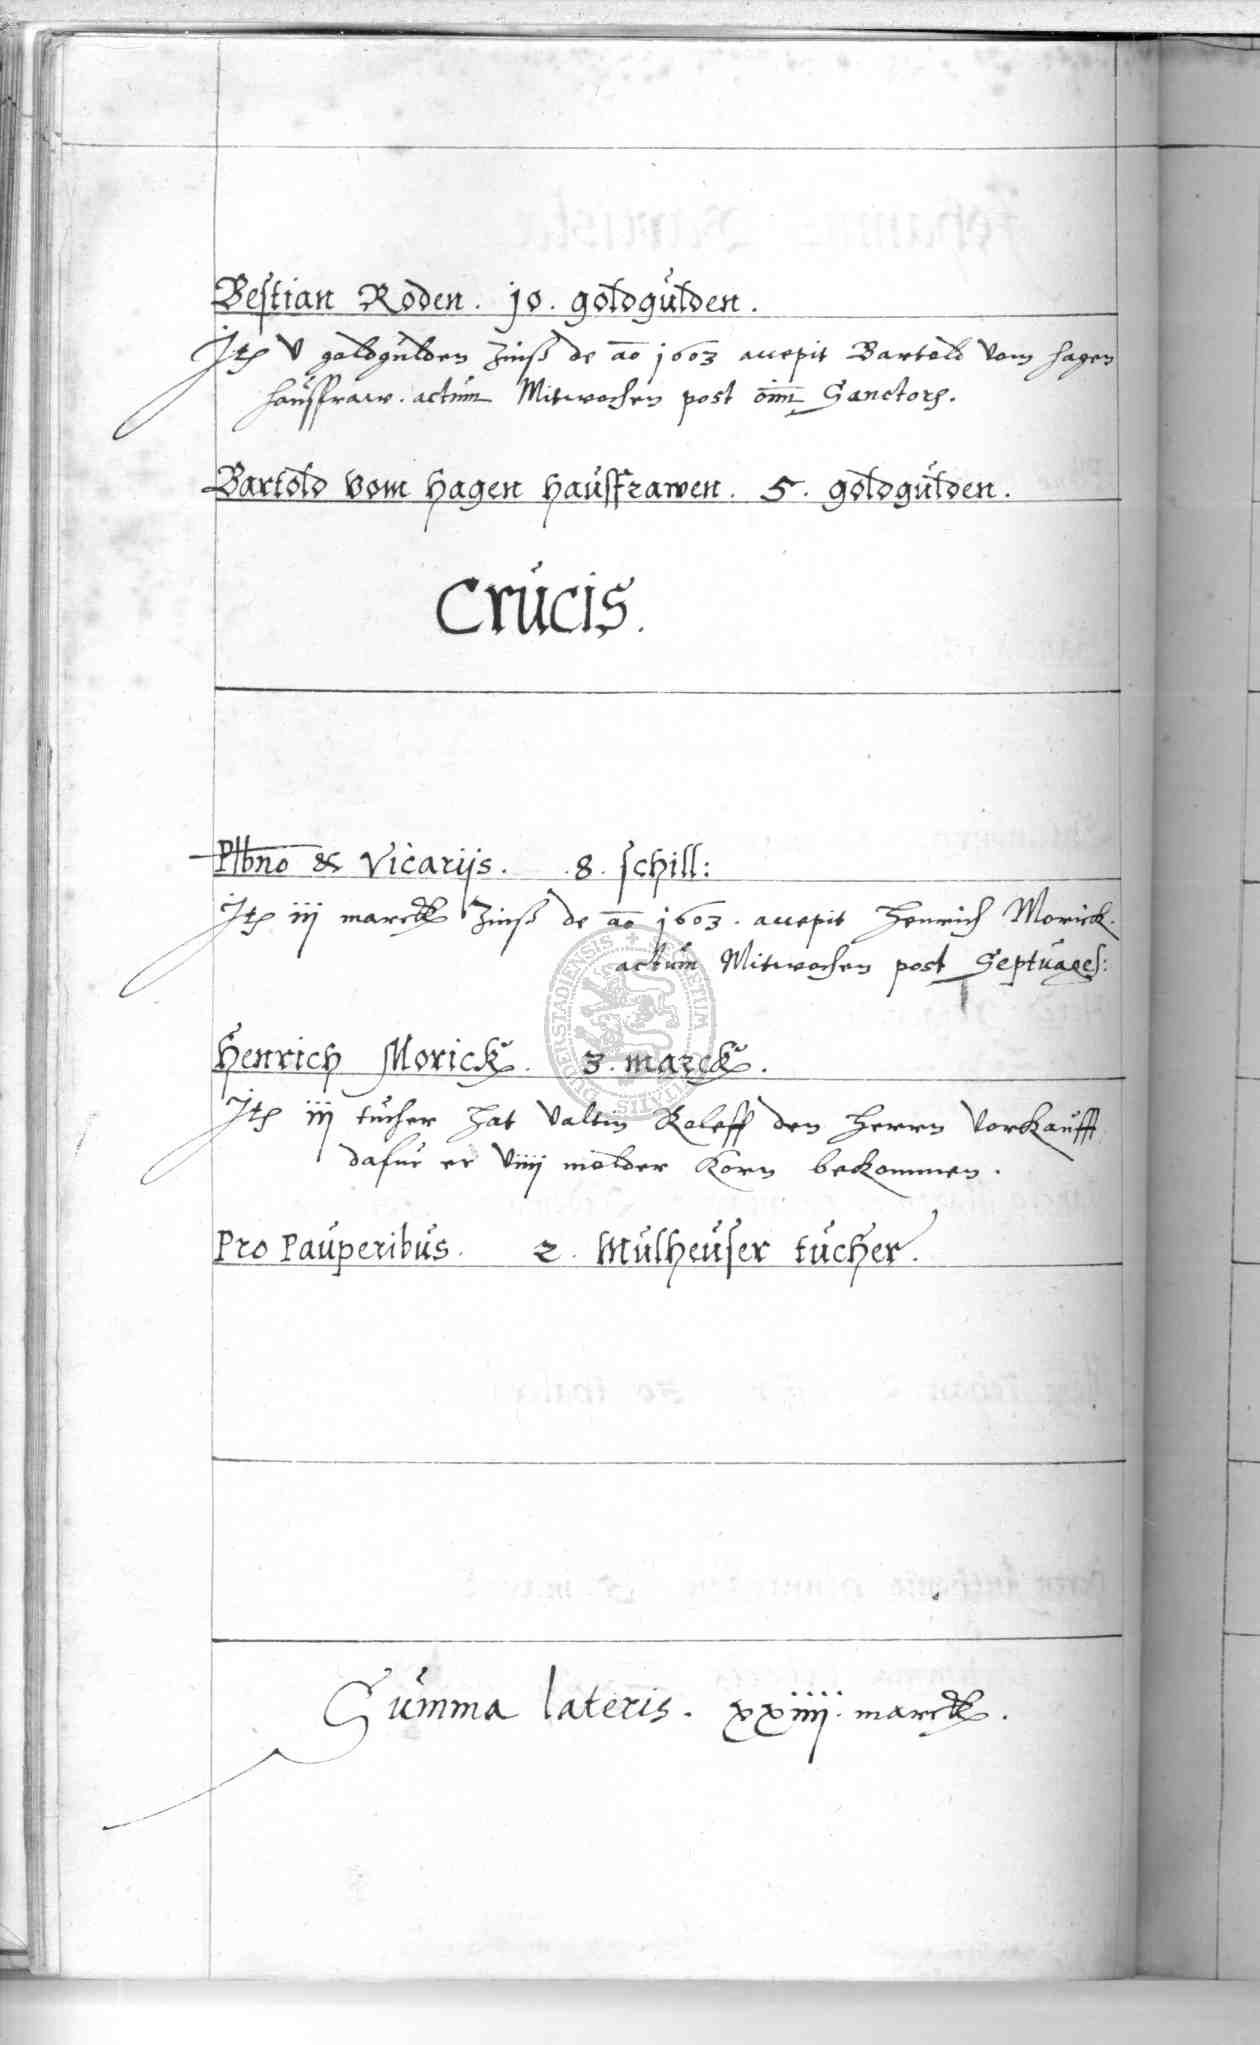 Bestian Roden. 10. goldgülden.
Itꝫ v goldgülden Zinß de a̅o̅ 1603 accepit Bartold vom hagen
haüsffraw. actüm Mitwochen post o̅i̅m̅ Sanctorꝫ.
Bartold vom hagen haüsfrawen. 5. goldgülden.
Crücis.
Plbno & Vicarijs. 8. schill:
Itꝫ iij marck Zinß de a̅o̅ 1603. accepit Henrich Morick.
actüm Mitwochen post Septüages:
Henrich Morick. 3. marck.
Itꝫ iij tücher hat Valtin Roleff den Herrn Vorkaüfft
dafür er viiij molder Korn bekommen.
Pro Paüperibüs. 2. Mülheüser tücher.
Sümma lateris. xxiiij. marck.